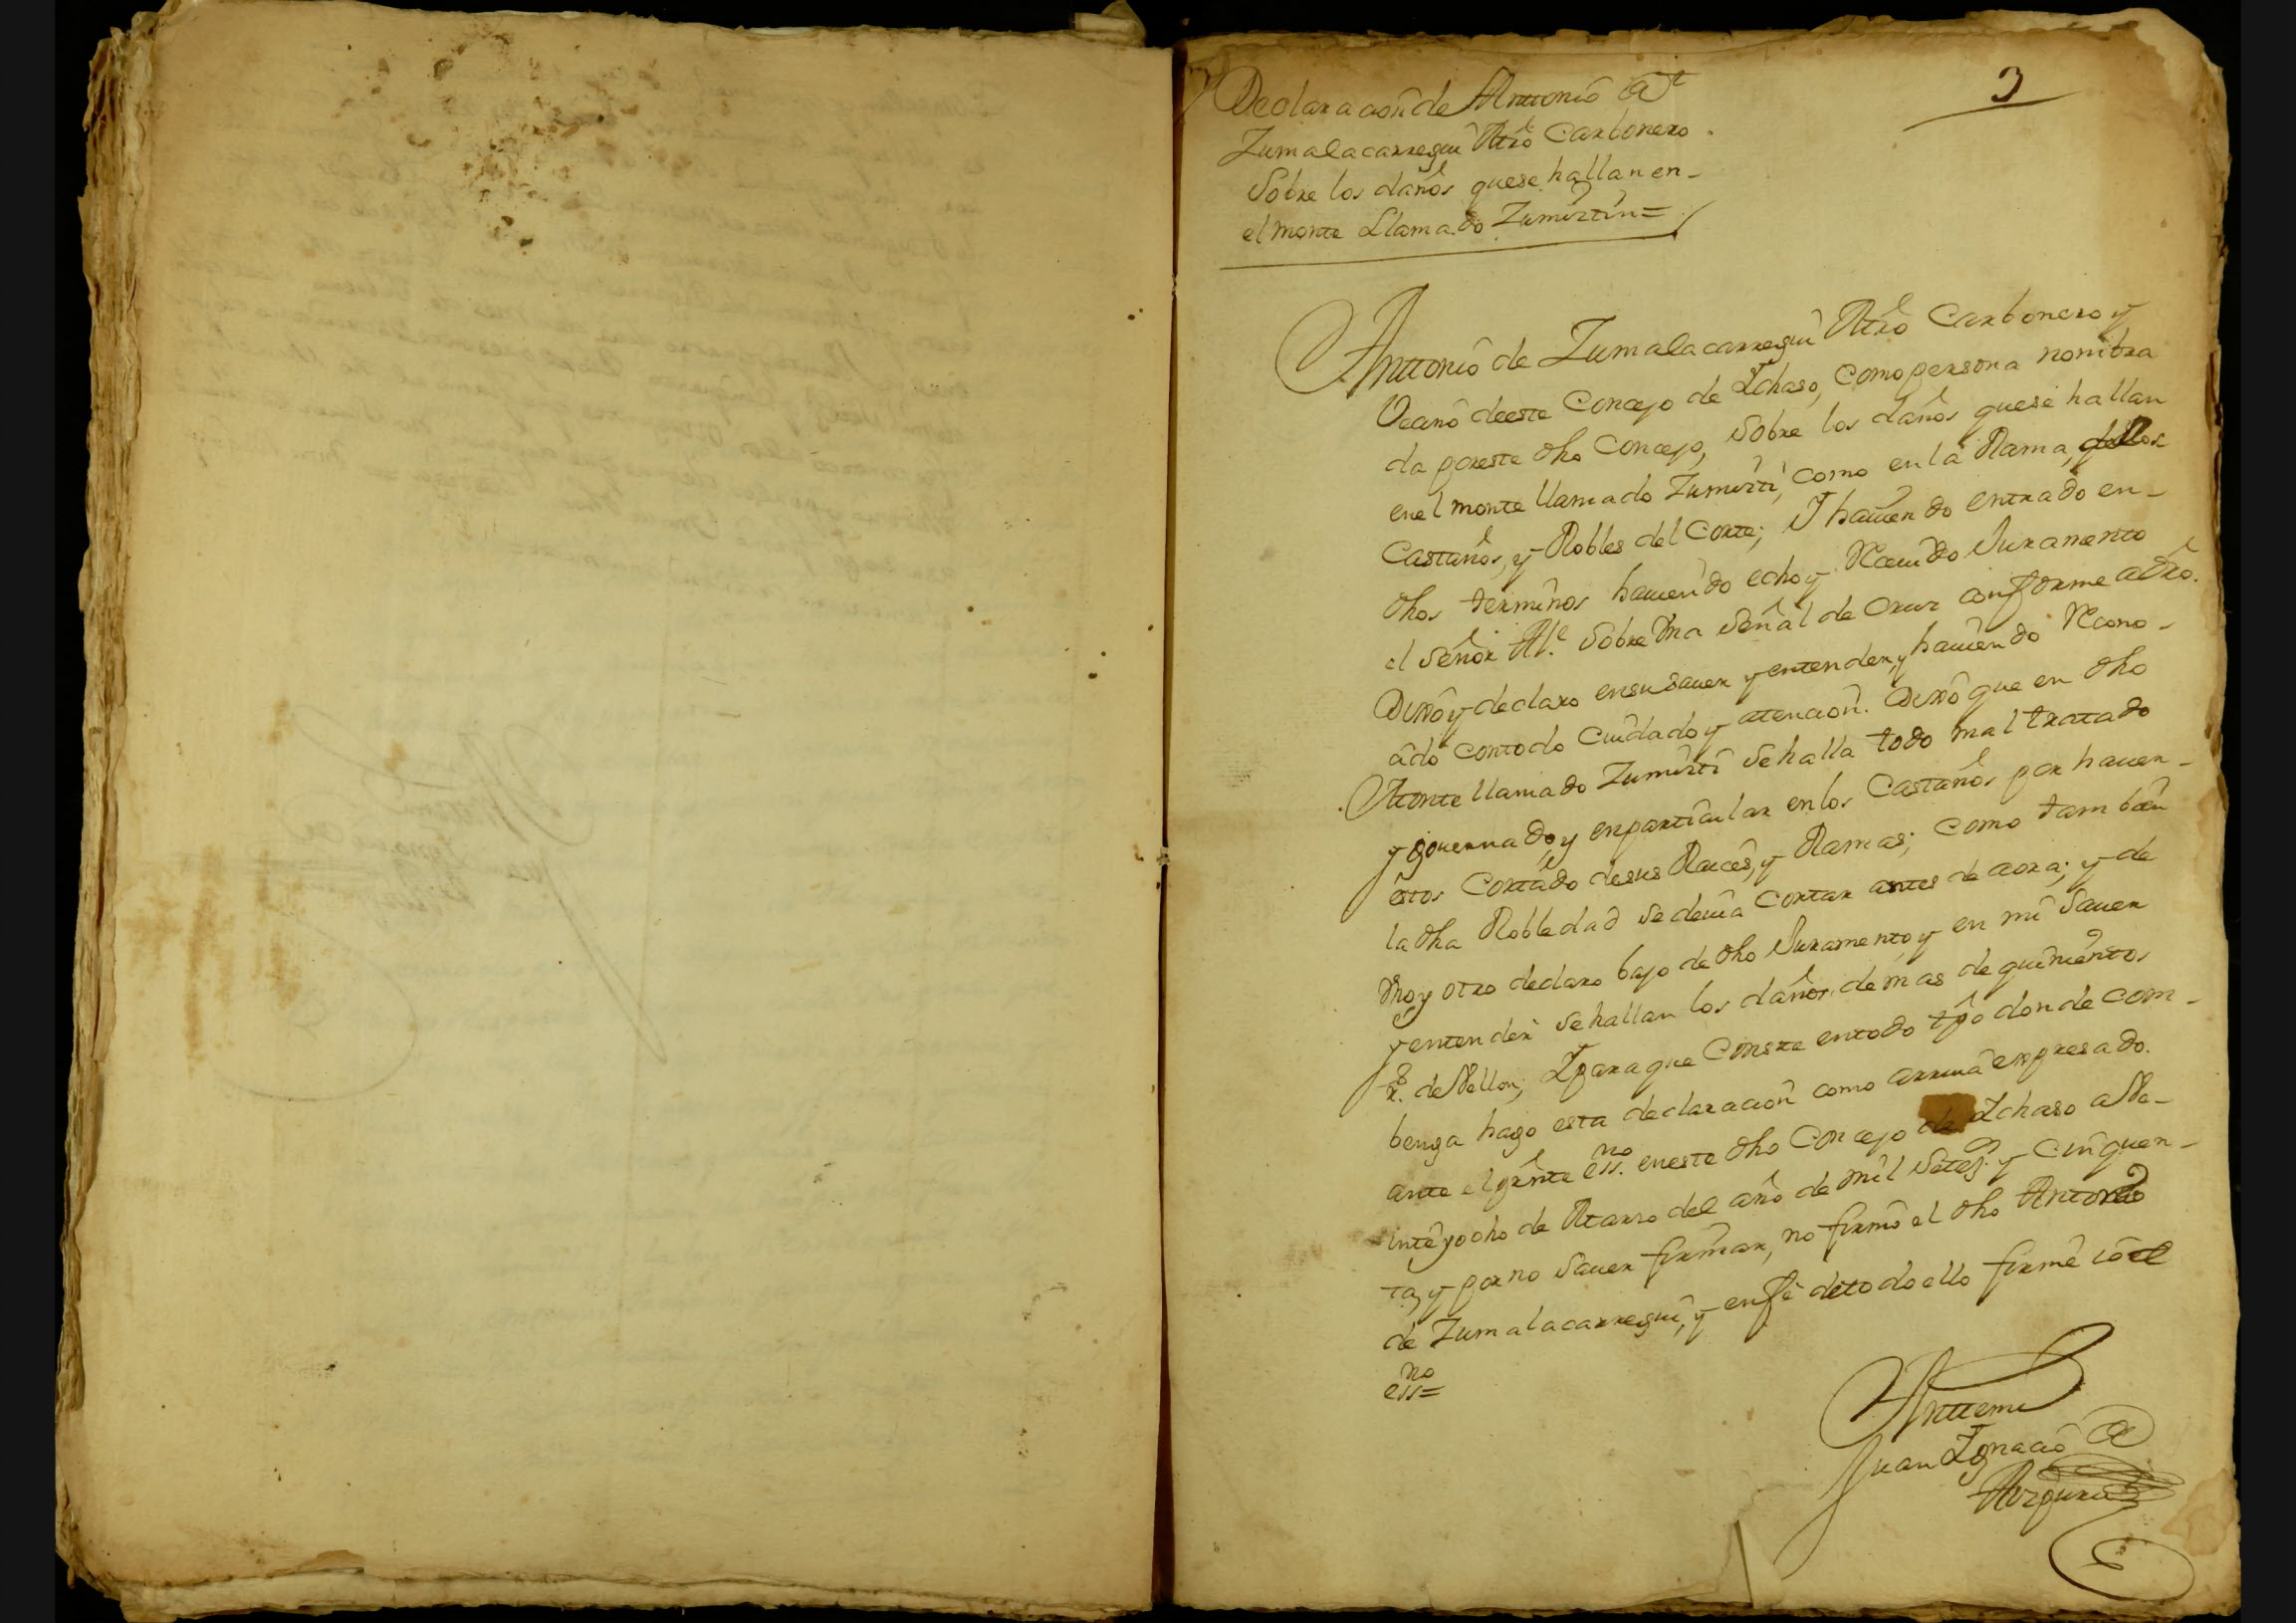 3
Declaracion de Anttonio de
Zumalacarregui Mro Carbonero
Sobre los daños que se hallan en
el monte Llamado Zumirtin=
Anttonio de Zumalacarregui Mro Carbonero y
Vecino deeste Concejo de Ichaso, Como persona nombra
da poreste dho Concejo, Sobre los daños quese hallan
enel monte llamado Zumirti, Como en la Rama, de los
Castaños, y Robles del Corte; Y haviendo entrado en
dhos terminos haviendo echo y Recivido Juramento
el Señor Ale. Sobre Una Señal de Cruz conforme adro.
Dixo y declaro ensu Saver y entender, y haviendo Recono-
cido contodo Cuidado y atencion. Dixo que en dho
Monte llamado Zumirti Sehalla todo mal tratado
y governado, y enparticular enlos Castaños por haver-
estos Cortado desus Raices, y Ramas; Como tambien
la dha Robledad Se devia Cortar antes de aora; y de
Uno, y otro declaro bajo de dho Juramento, y en mi Saver
y entender Se hallan los daños de mas de quinientos
Rs. de Vellon; Y para que Conste entodo tpo donde com-
benga hago esta declaracion como arriva expresado.
ante el prste essno. eneste dho Concejo de Ichaso a Ve-
inte y ocho de Marzo del año de mil Setezs. y Cinquen-
ta, y por no Saver firmar, no firmo el dho Antonio
de Zumalacarregui, y en fe de todo ello firmé io el
essno=
Antte mi
Juan Ignacio de